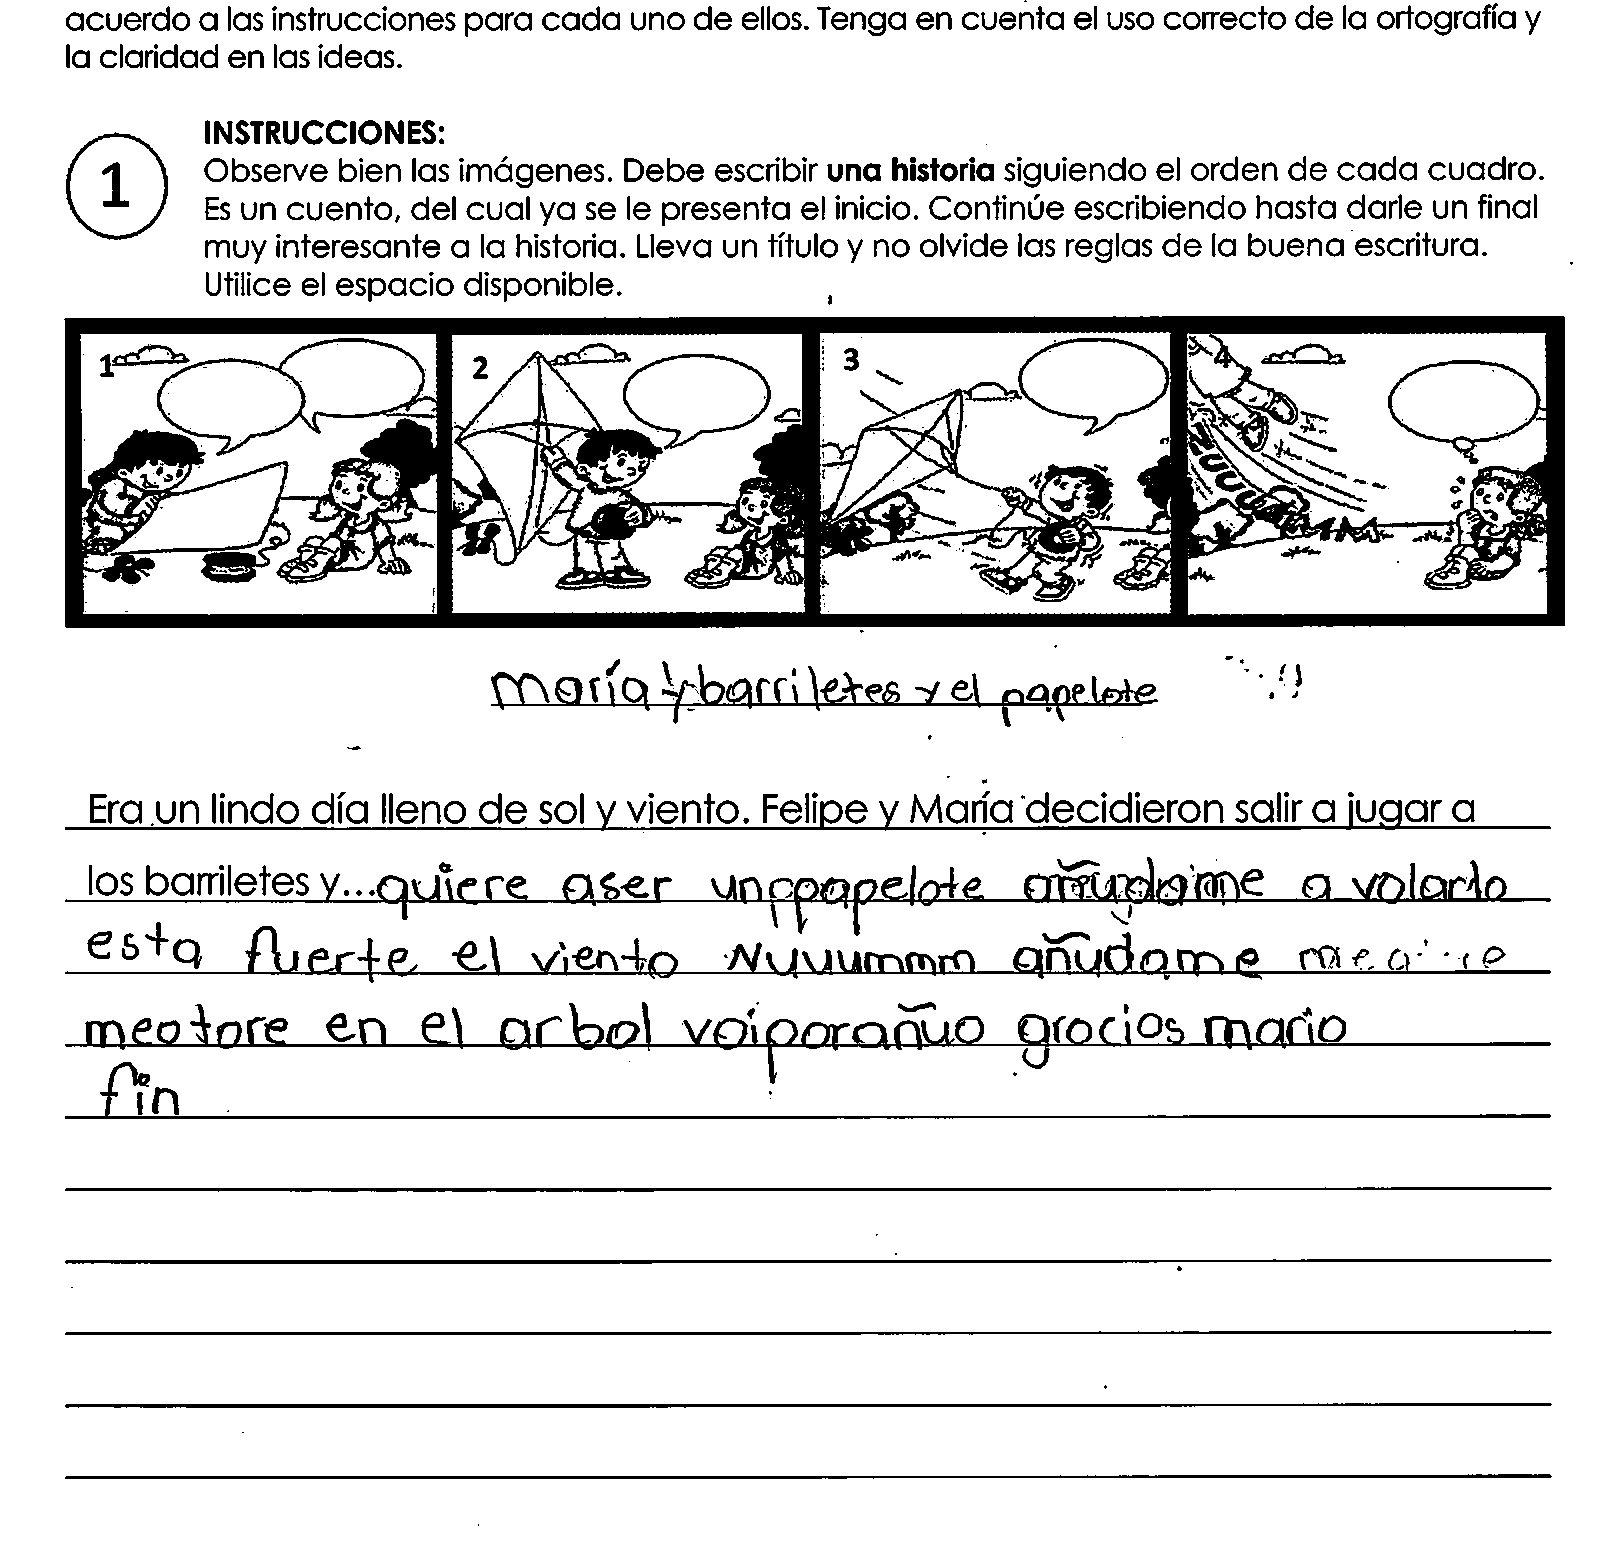 acuerdo a las instrucciones para cada uno de ellos. Tenga en cuenta el uso correcto de la ortografía y
la claridad en las ideas.
1
INSTRUCCIONES:
Observe bien las imágenes. Debe escribir una historia siguiendo el orden de cada cuadro.
Es un cuento, del cual ya se le presenta el inicio. Continúe escribiendo hasta darle un final
muy interesante a la historia. Lleva un título y no olvide las reglas de la buena escritura.
Utilice el espacio disponible.
1 2 3 4
maría y barriletes y el papelote
Era un lindo día lleno de sol y viento. Felipe y María decidieron salir a jugar a
los barriletes y...quiere aser un papelote añudame a volarlo
esta fuerte el viento Nuuuummm añudame
meotore en el arbol voiporañuo grocios mario
fin